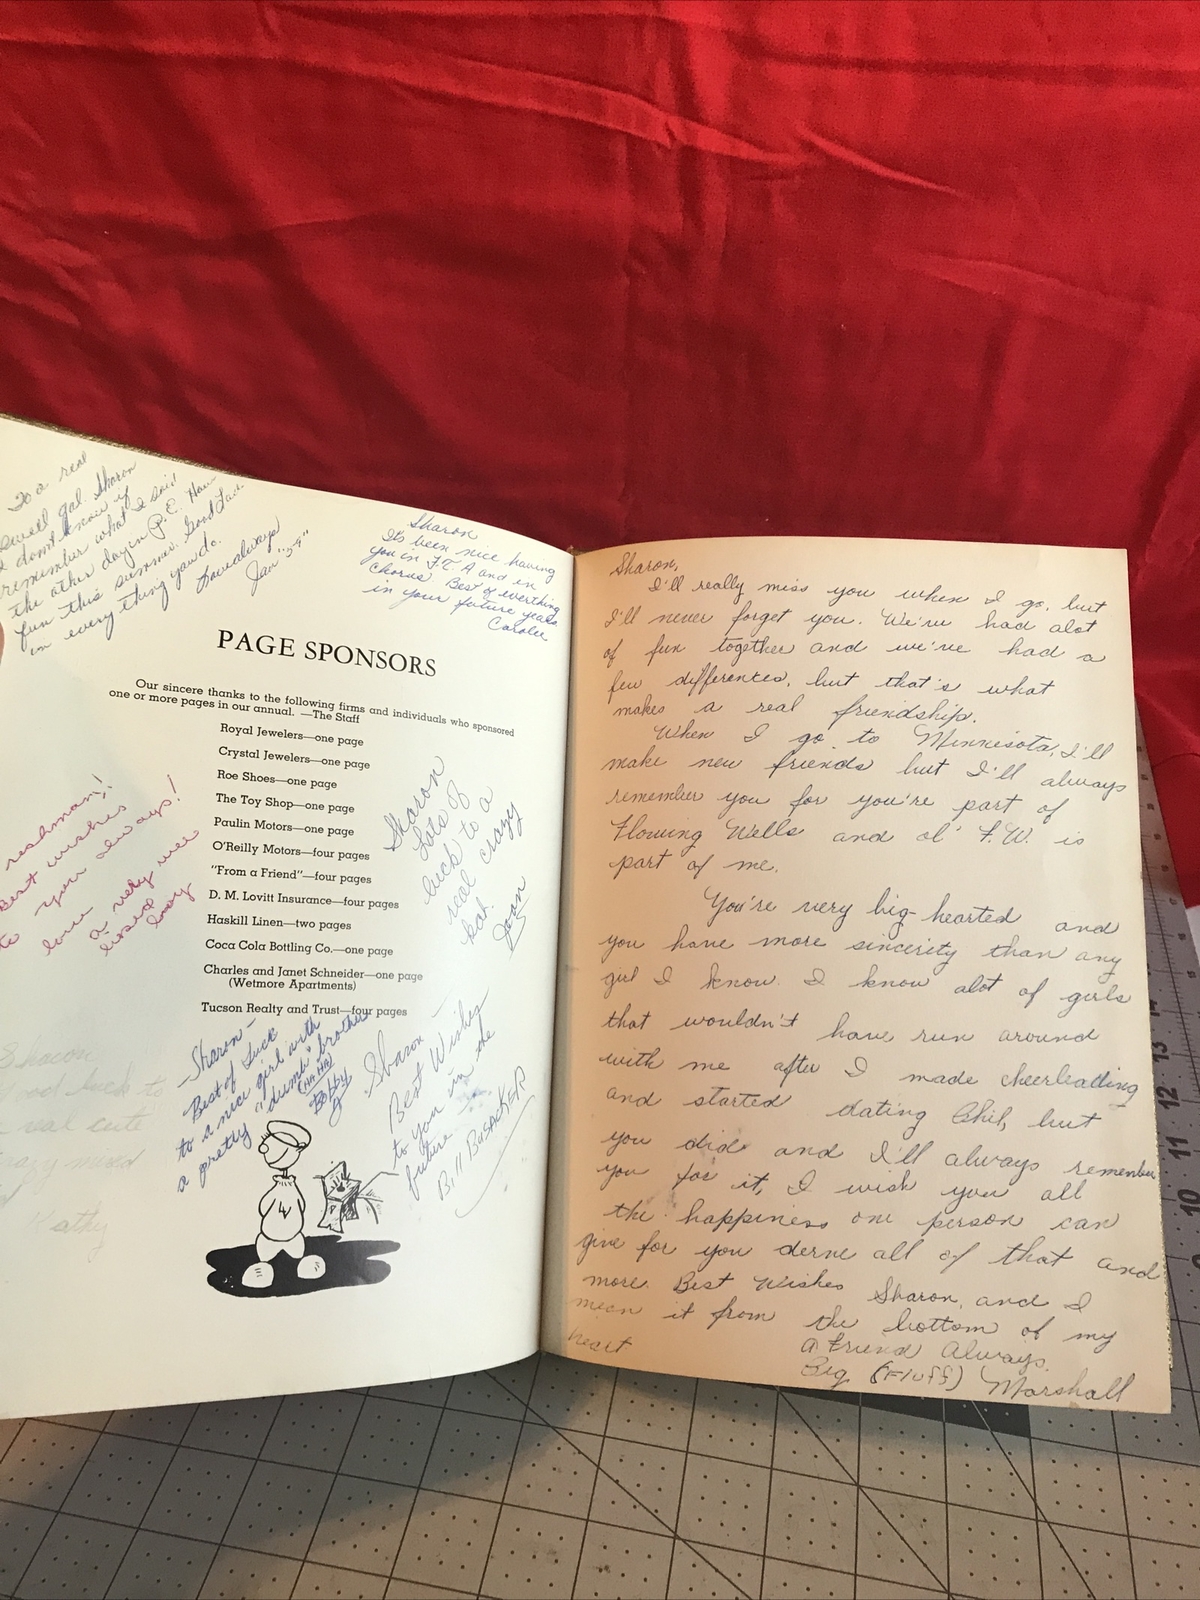 To a real
swell gal. Sharon
I don't know if
remember what I said
the other day in P.E. Have
fun this summer. Good Luck
in every thing you do.
Love always
Jan "54"
Sharon
It's been nice having
you in F.T.A and in
Chorus. Best of everthing
in your future years.
Carolee
PAGE SPONSORS
Our sincere thanks to the following firms and individuals who sponsored
one or more pages in our annual. —The Staff
Royal Jewelers—one page
Crystal Jewelers—one page
Roe Shoes—one page
The Toy Shop—one page
Paulin Motors—one page
O'Reilly Motors—four pages
"From a Friend"—four pages
D. M. Lovitt Insurance—four pages
Haskill Linen—two pages
Coca Cola Bottling Co.—one page
Charles and Janet Schneider—one page
(Wetmore Apartments)
Tucson Realty and Trust—four pages
reshman,
Best wishes
to you always!
love
a very wee
Sharon
Lots of
luck to a
real crazy
kid.
Joan
Sharon
Good luck to
a real cute
crazy mixed
Kathy
Sharon—
Best of Luck
to a nice girl with
a pretty "dumb" brother
(HA HA)
Bobby
Sharon—
Best Wishes
to you in the
future
Bill BUSACKER
4
Sharon,
I'll really miss you when I go, but
I'll never forget you. We've had alot
of fun together and we've had a
few differences, but that's what
makes a real friendship.
When I go to Minnesota, I'll
make new friends but I'll always
remember you for you're part of
Flowing Wells and ol' F.W. is
part of me.
You're very big-hearted and
you have more sincerity than any
girl I know. I know alot of girls
that wouldn't have run around
with me after I made cheerleading
and started dating Chil, but
you did and I'll always remember
you for it, I wish you all
the happiness one person can
give for you derne all of that and
more. Best Wishes Sharon, and I
mean it from the bottom of my
heart
a Friend Always.
Big (Fluff) Marshall
14
13
12
10